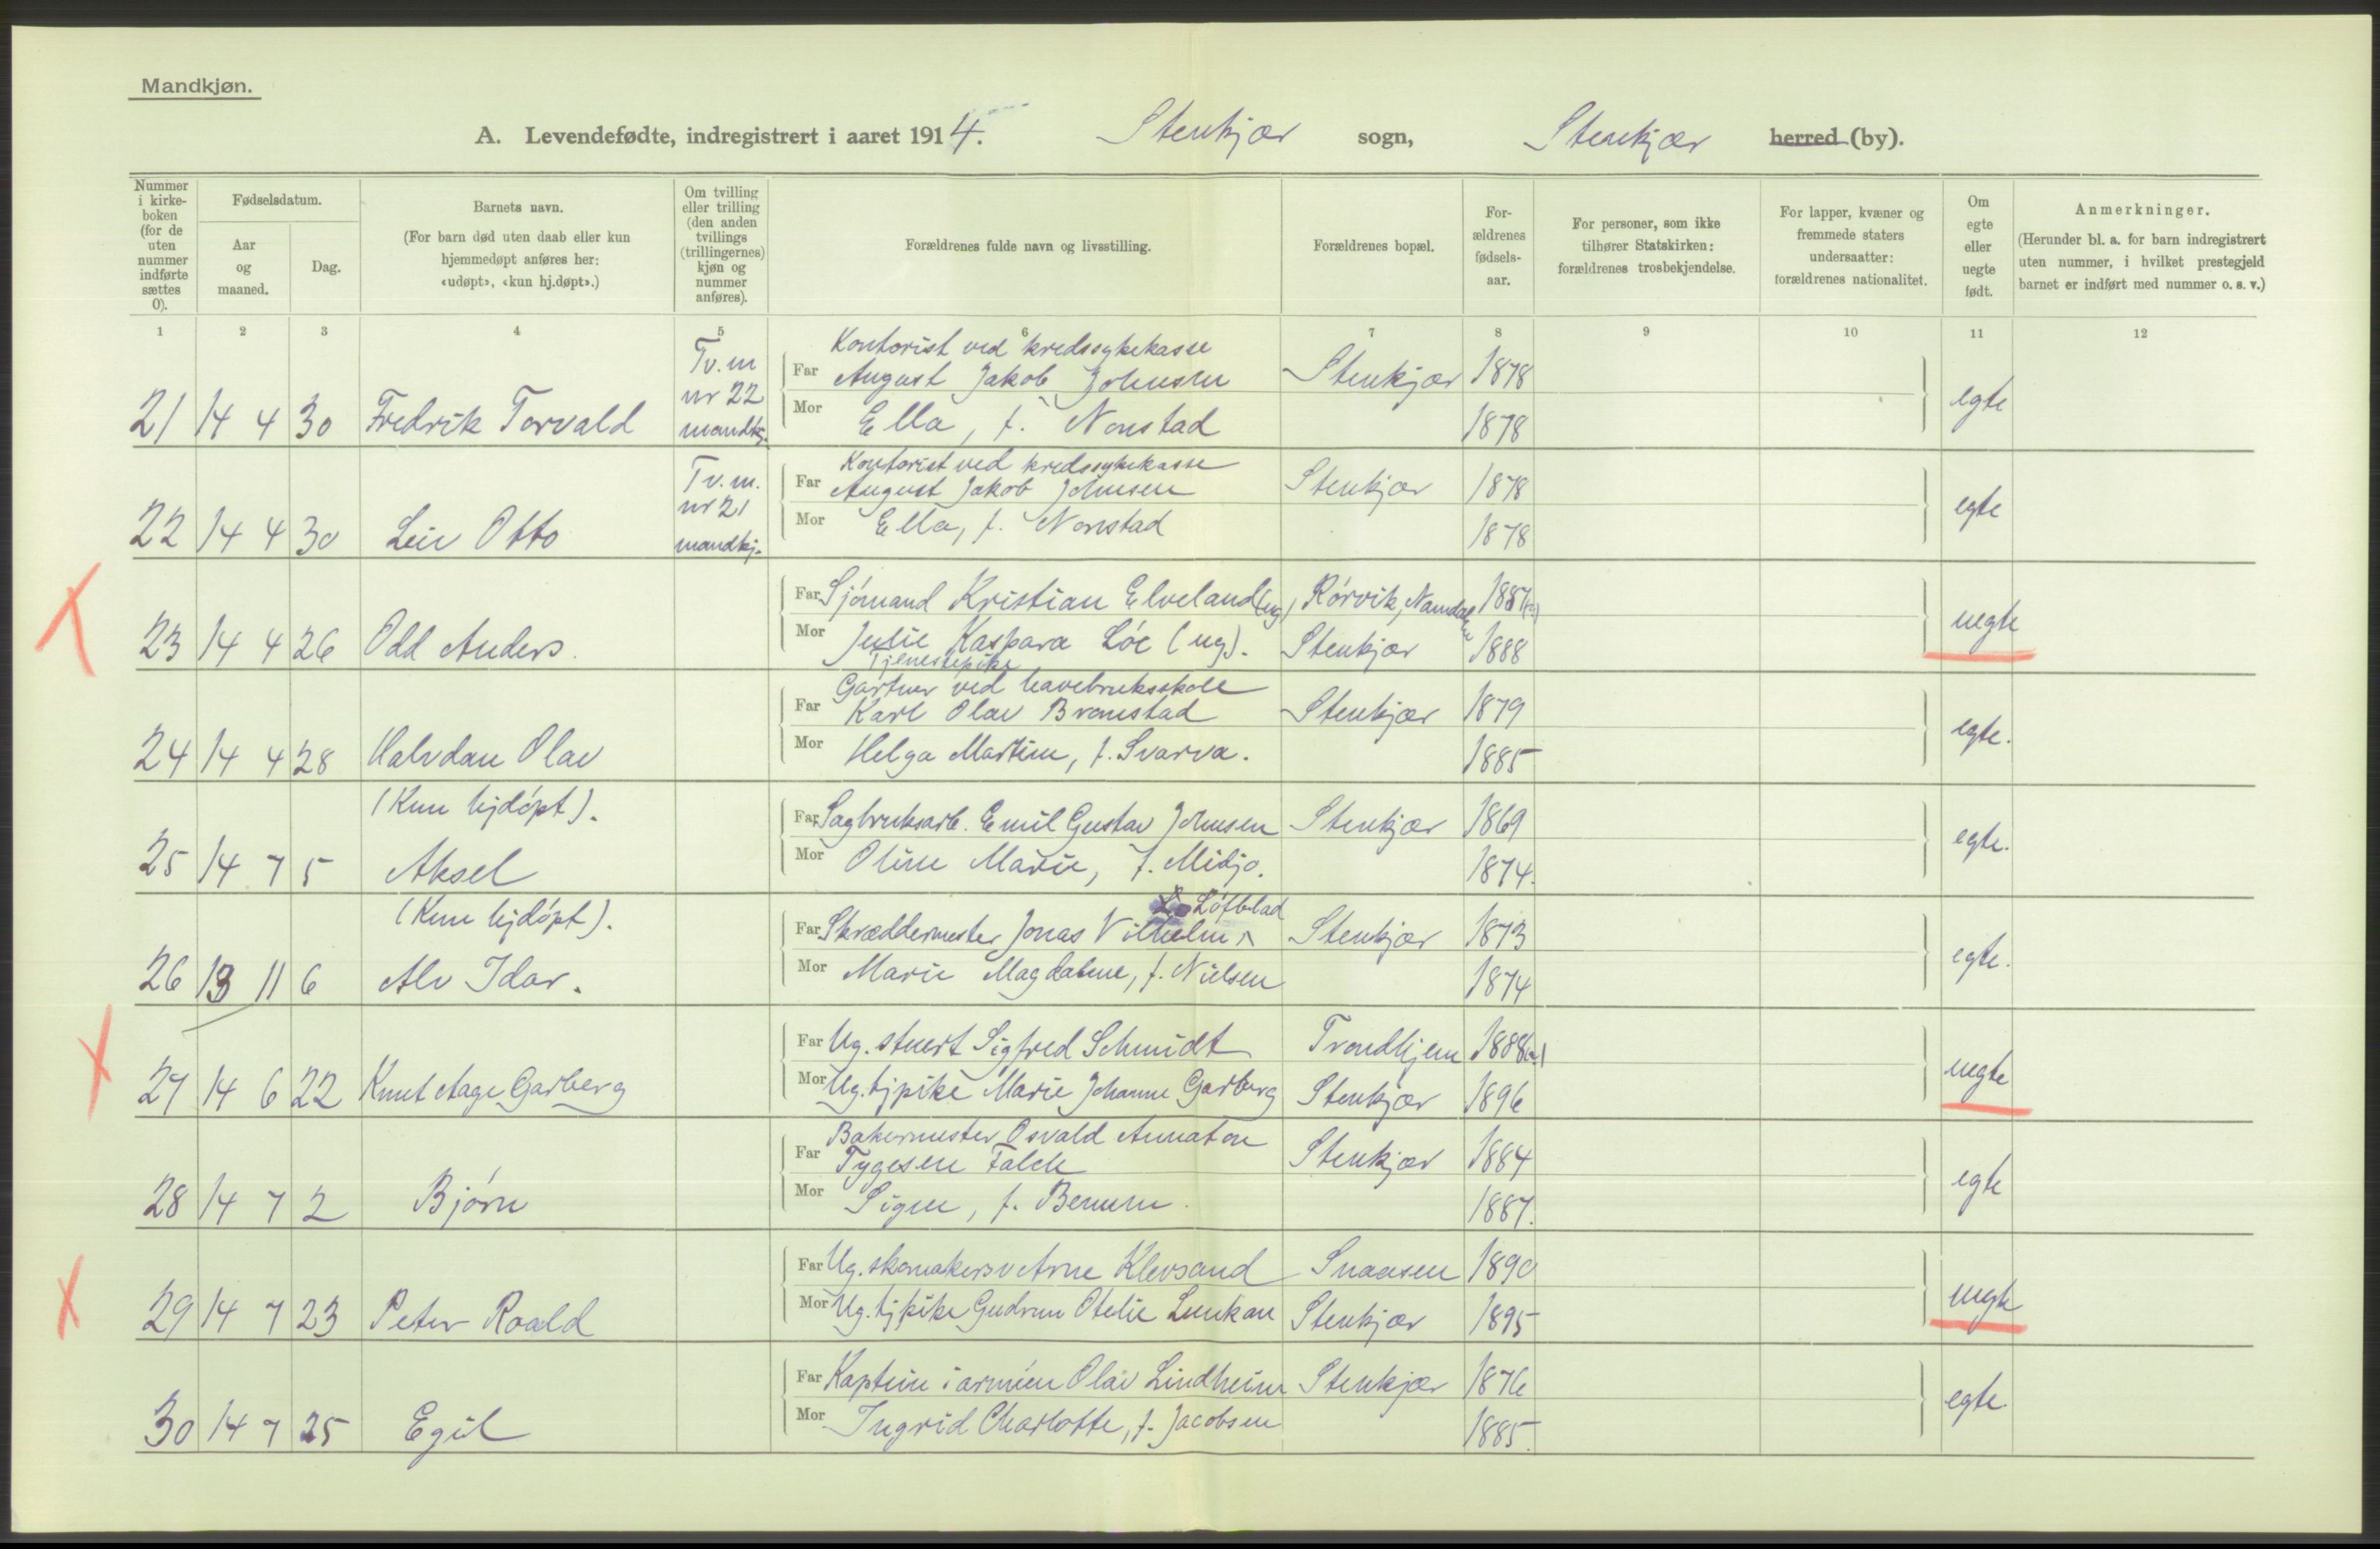 Mandkjøn.
A. Levendefødte, indregistrert i aaret 1914. Stenkjær sogn, Stenkjær herred (by).
Nummer i kirke-boken (for de uten nummer indførte sættes 0).
Fødselsdatum.
Aar og maaned.
Dag.
Barnets navn.
(For barn død uten daab eller kun hjemmedøpt anføres her: «udøpt», «kun hj.døpt».)
Om tvilling eller trilling (den anden tvillings (trillingernes) kjøn og nummer anføres).
Forældrenes fulde navn og livsstilling.
Forældrenes bopæl.
For-ældrenes fødsels-aar.
For personer, som ikke tilhører Statskirken: forældrenes trosbekjendelse.
For lapper, kvæner og fremmede staters undersaatter: forældrenes nationalitet.
Om egte eller uegte født.
Anmerkninger.
(Herunder bl. a. for barn indregistrert uten nummer, i hvilket prestegjeld barnet er indført med nummer o. s. v.)
1 2 3 4 5 6 7 8 9 10 11 12
Kontorist ved kredssykekasse
21 14 4 30 Fredrik Torvald Tv. m nr 22 mandkj. Far August Jakob Johnsen Stenkjær 1878 egte
Mor Ella, f. Nonstad 1878
Kontorist ved kredssykekasse
22 14 4 30 Leiv Otto Tv. m. nr 21 mandkj. Far August Jakob Johnsen Stenkjær 1878 egte
Mor Ella, f. Nonstad 1878
23 14 4 26 Odd Anders. Far Sjømand Kristian Elveland (ug) Rørvik, Namdalen 1887 uegte
Mor Julie Kaspara Løe (ug). Stenkjær 1888
Tjenestepike
Gartner ved havebruksskole
24 14 4 28 Halvdan Olav Far Karl Olav Bronstad Stenkjær 1879 egte.
Mor Helga Martine, f. Svarva. 1885
(Kun hjdøpt).
25 14 7 5 Aksel Far Sagbruksarb. Emil Gustav Johnsen Stenkjær 1869 egte.
Mor Oline Marie, f. Midjo. 1874.
(Kun hjdøpt).
Löfblad
26 13 11 6 Alv Idar. Far Skræddermester Jonas Vilhelm Stenkjær 1873 egte.
Mor Marie Magdalene, f. Nielsen 1874
27 14 6 22 Knut Aage Garberg Far Ug. stuert Sigfred Schmidt Trondhjem 1888 uegte
Mor Ug. tjpike Marie Johanne Garberg Stenkjær 1896
Bakermester Osvald Annaton
28 14 7 2 Bjørn Far Tygesen Falck Stenkjær 1884 egte
Mor Signe, f. 1887.
29 14 7 23 Peter Roald Far Ug. skomakersv Arne Klevsand Snaasen 1890 uegte
Mor Ug. tjpike Gudrun Otelie Lunkan Stenkjær 1895
30 14 7 25 Egil Far Kaptein i armeen Olav Lindheim Stenkjær 1876 egte.
Mor Ingrid Charlotte, f. Jacobsen 1885.